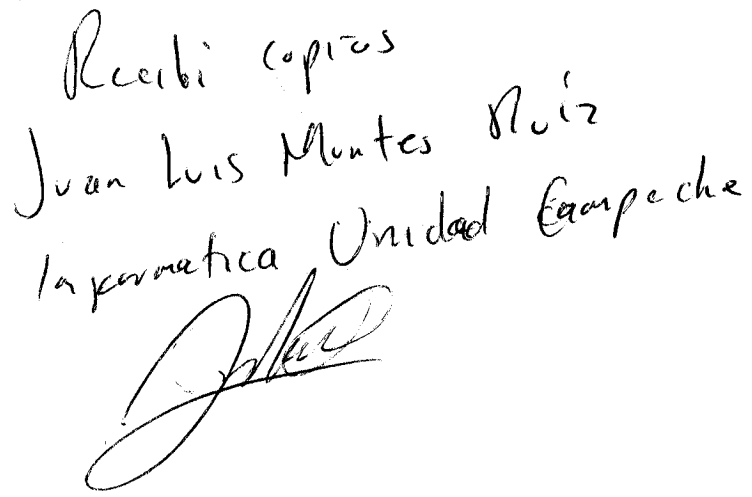 Recibi copias
Juan Luis Montes Ruíz
Informatica Unidad Campeche